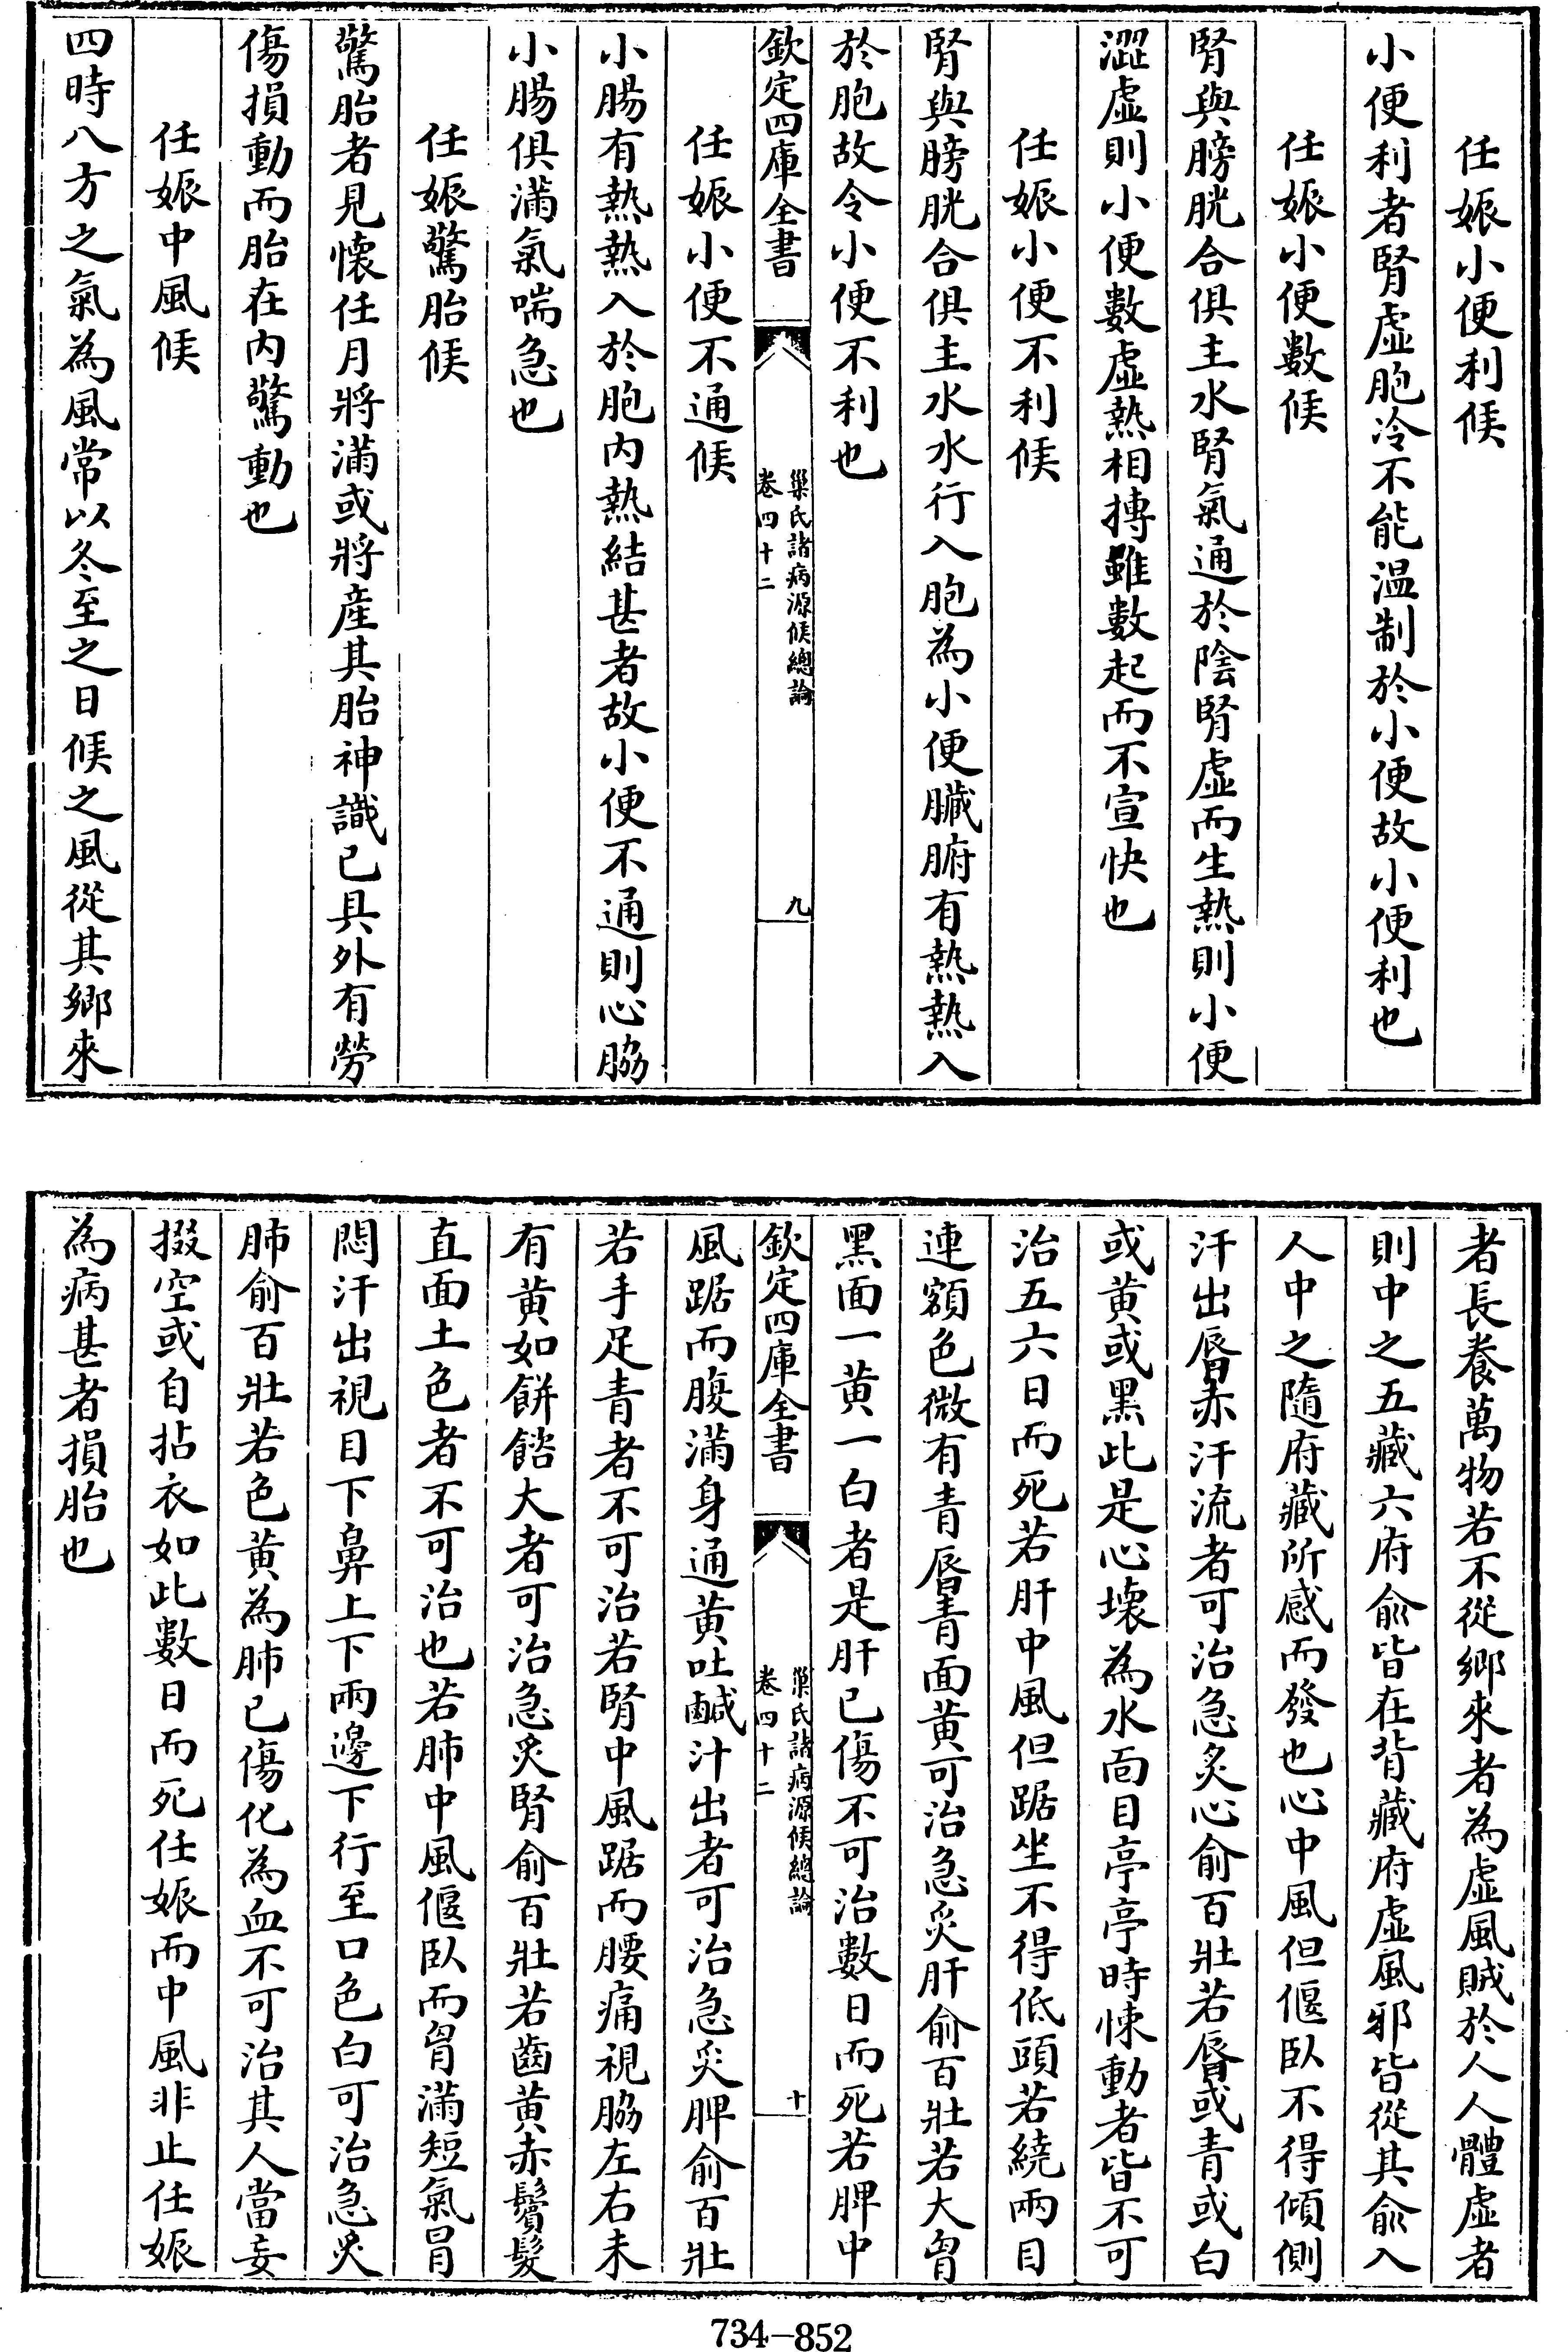 任娠小便利候
小便利者腎虛胞冷不能温制於小便故小便利也
任娠小便數候
腎與膀胱合俱主水腎氣通於陰腎虛而生熱則小便
澀虛則小便數虛熱相搏雖數起而不宣快也
任娠小便不利候
腎與膀胱合俱主水水行入胞為小便臟腑有熱熱入
於胞故令小便不利也
欽定四庫全書
巢氏諸病源候總論
卷四十二
九
任娠小便不通候
小腸有熱熱入於胞内熱結甚者故小便不通則心脇
小腸俱滿氣喘急也
任娠驚胎候
驚胎者見懷任月將滿或將産其胎神識已具外有勞
傷損動而胎在内驚動也
任娠中風候
四時八方之氣為風常以冬至之日候之風從其鄉來
者長養萬物若不從鄉來者為虛風賊於人人體虛者
則中之五藏六府俞皆在背藏府虛風邪皆從其俞入
人中之隨府藏所感而發也心中風但偃臥不得傾側
汗出唇赤汗流者可治急炙心俞百壯若唇或青或白
或黄或黑此是心壞為水面目亭亭時悚動者皆不可
治五六日而死若肝中風但踞坐不得低頭若繞兩目
連額色微有青唇青面黄可治急炙肝俞百壯若大胷
黑面一黄一白者是肝已傷不可治數日而死若脾中
欽定四庫全書
巢氏諸病源候總論
卷四十二
十
風踞而腹滿身通黄吐鹹汁出者可治急炙脾俞百壯
若手足青者不可治若腎中風踞而腰痛視脇左右未
有黄如餅餎大者可治急炙腎俞百壯若齒黄赤鬢髮
直面土色者不可治也若肺中風偃臥而胷滿短氣冒
悶汗出視目下鼻上下兩邊下行至口色白可治急炙
肺俞百壯若色黄為肺已傷化為血不可治其人當妄
掇空或自拈衣如此數日而死任娠而中風非止任娠
為病甚者損胎也
734-852